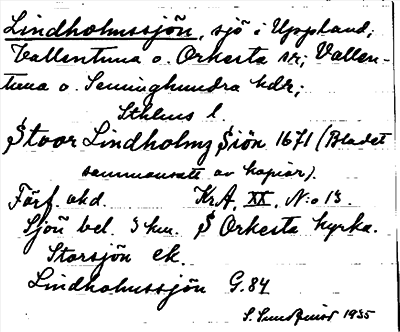 Lindholmssjön, sjö i Uppland;
Vallentuna o. Orkesta sr; Vallen-
tuna o. Seminghundra hdr;
Sthlms l.
Stoor Lindholmz Siön 1671 (Bladet
sammansatt av kopior).
Förf. okd. Kr.A, XX, N:o 13.
Sjön bel. 3 km. S Orkesta kyrka.
Storsjön ek.
Lindholmssjön G.84
S. Sundquist 1935